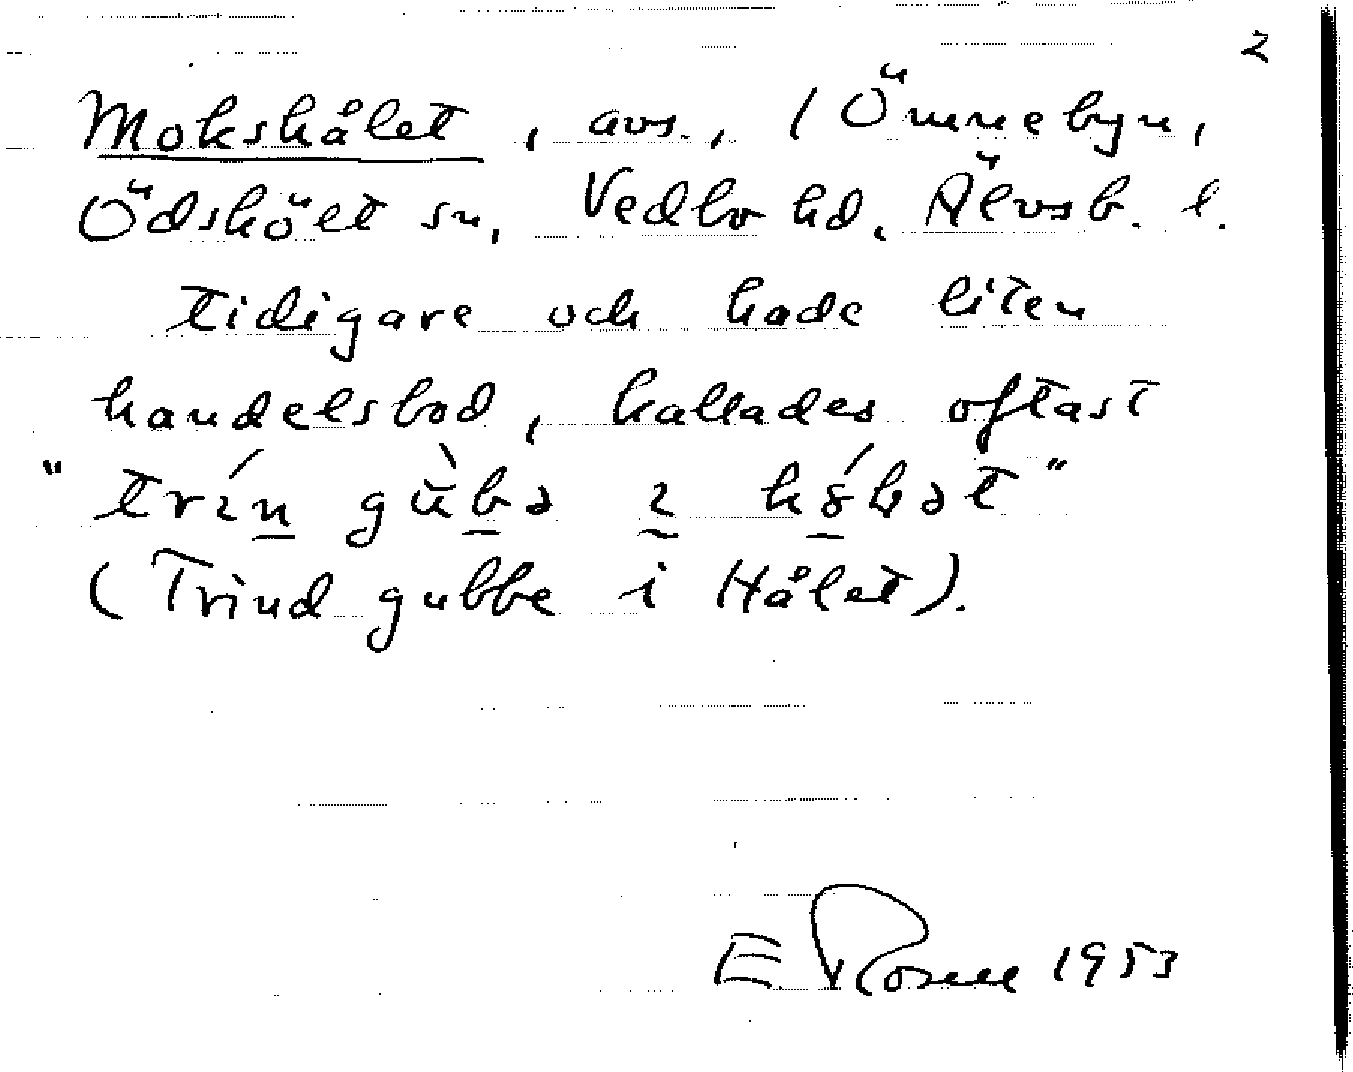 2
Mokshålet, avs., (Ömnebyn,
Ödskölt sn, Vedbo hd, Älvsb. l.
tidigare och hade liten
handelsbod, kallades oftast
"
(Trind gubbe i Hålet).
E Rosell 1953